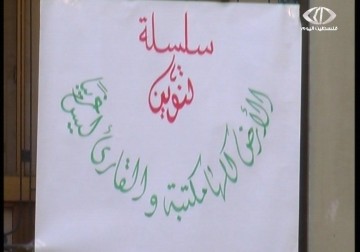 سلسلة
تنوين
الأرض كلها مكتبة والقارئ ليس غريبا
فلسطين اليوم